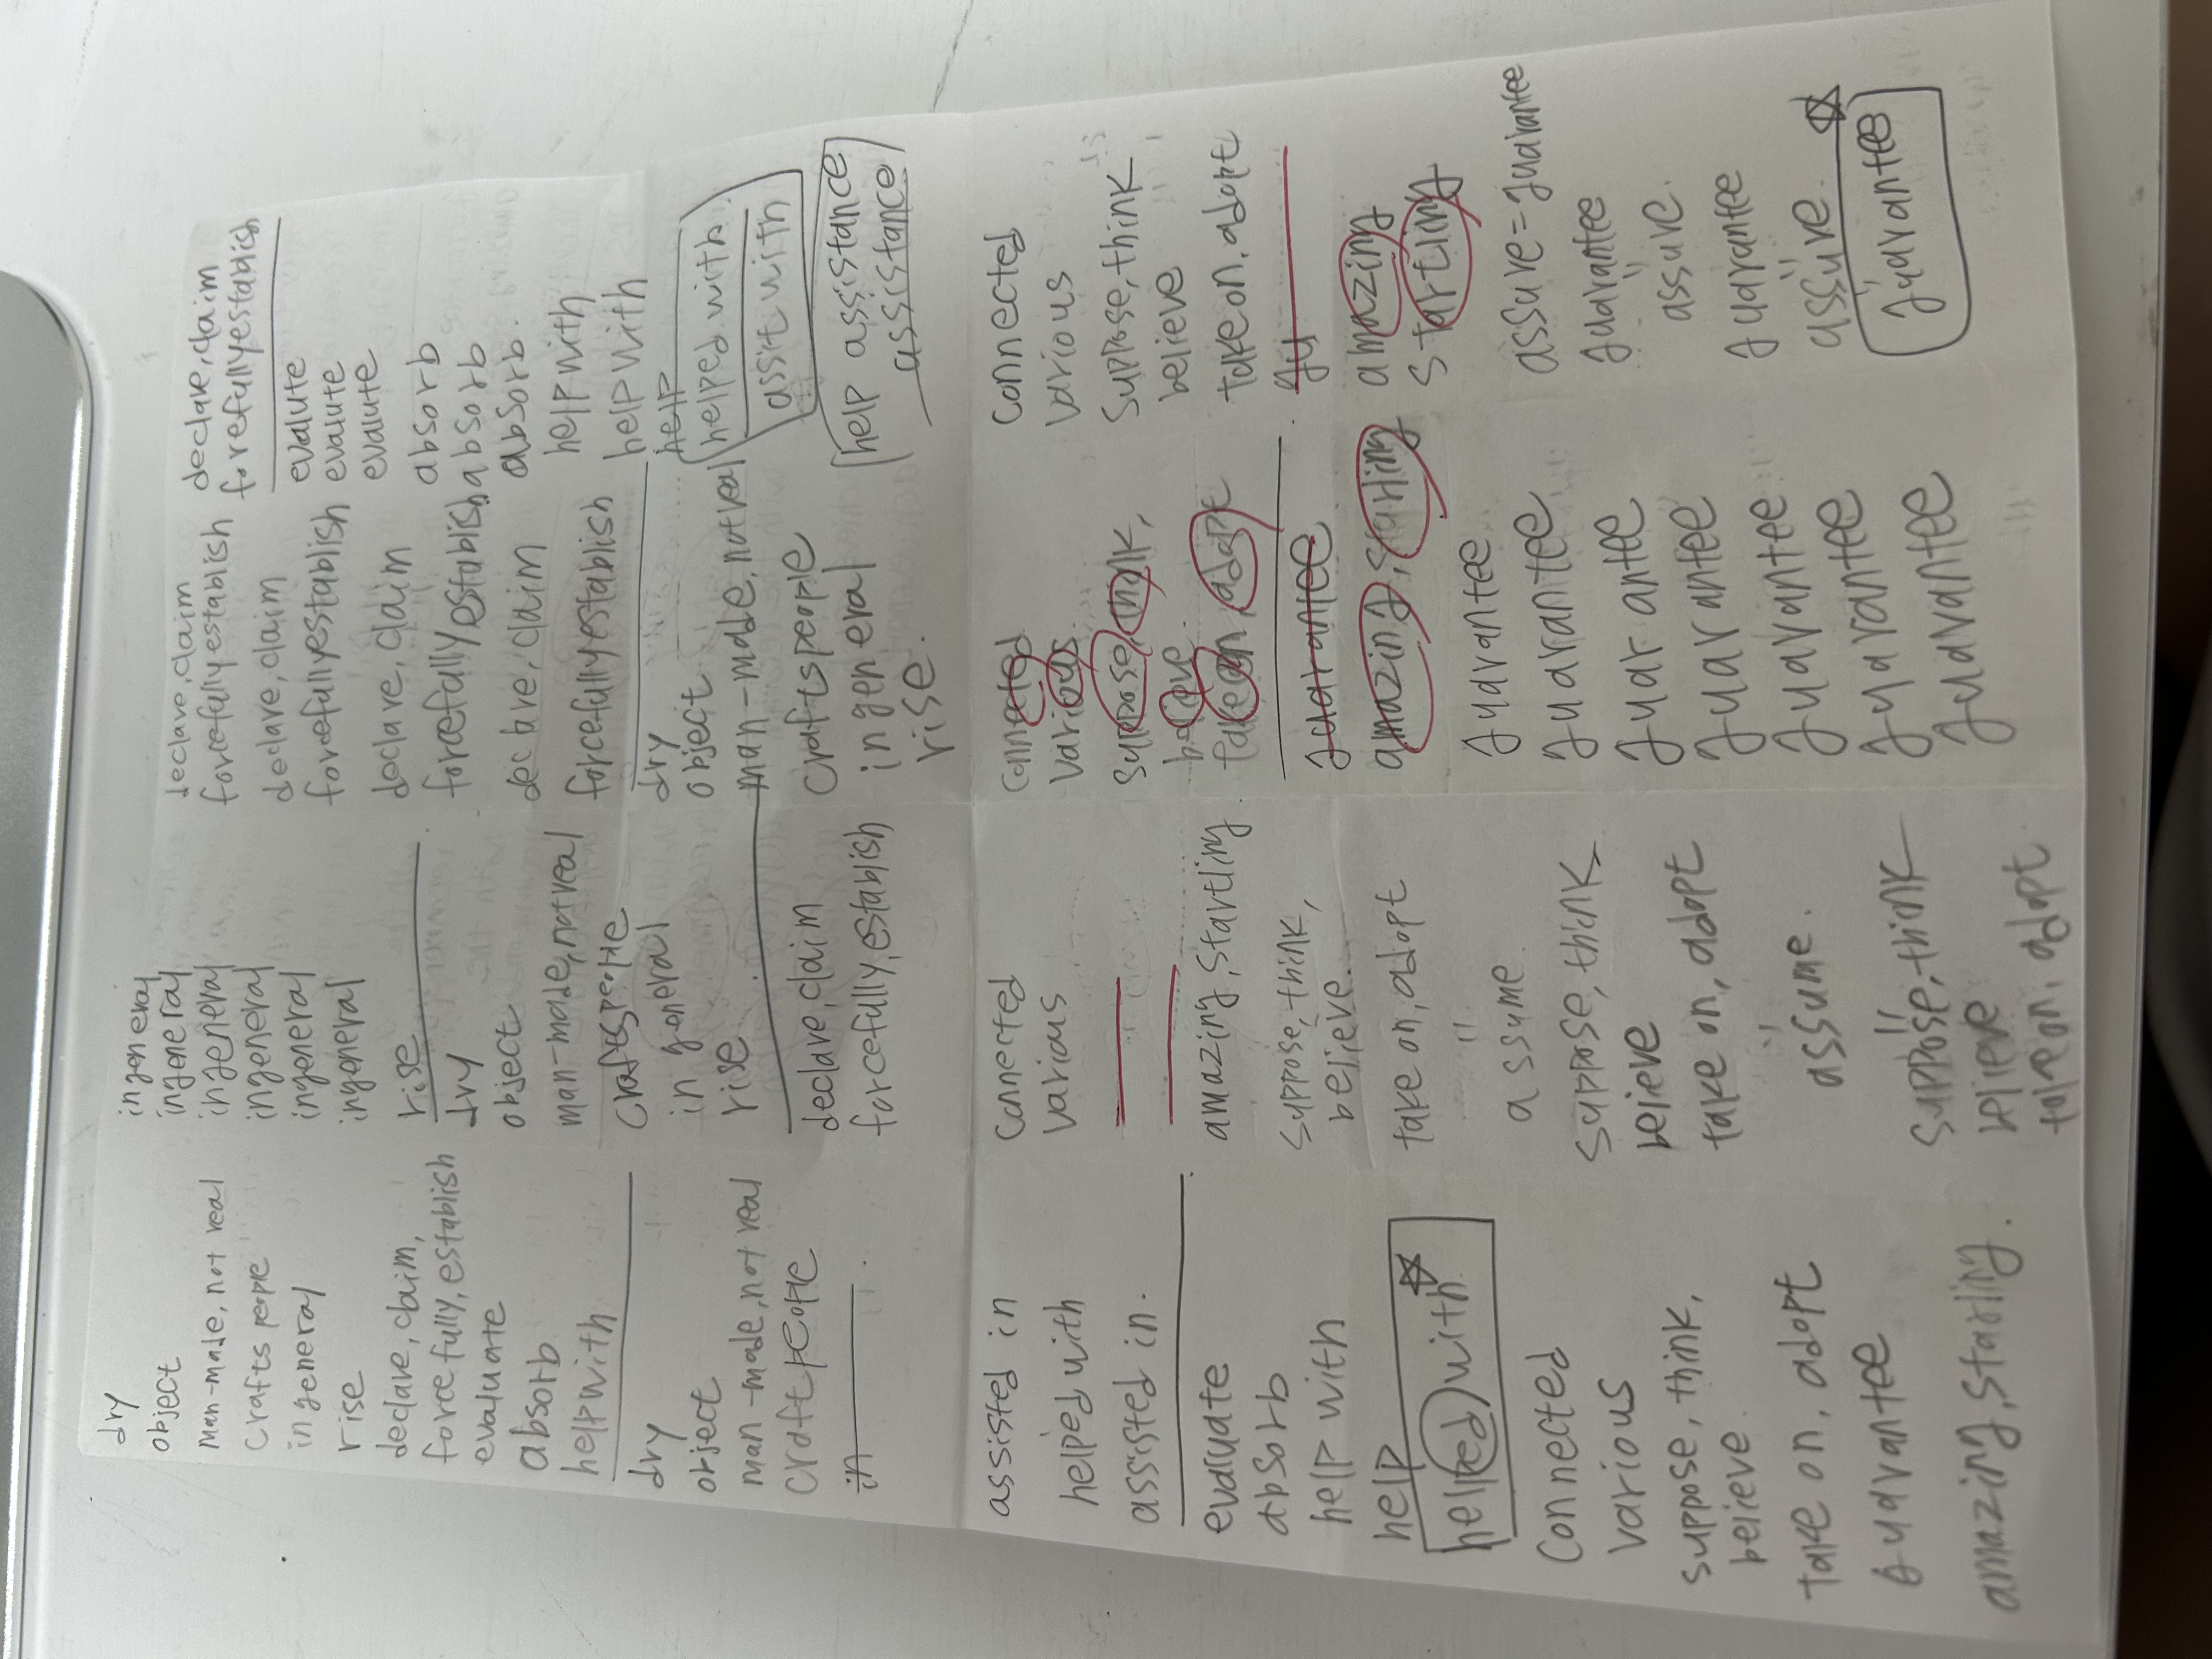 dry
object
man-made, not real
crafts people
in general
rise
declare, claim,
forcefully, establish
evaluate
absorb
help with
dry
object
man-made, not real
craft people
in
ingeneral
ingeneral
ingeneral
ingeneral
ingeneral
ingeneral
rise
dry
object
man-made, not real
craftspeople
in general
rise
declare, claim
forcefully, establish
declare, claim
forcefully establish
declare, claim
forcefullyestablish
declare, claim
forcefully establish
declare, claim
forcefullyestablish
dry
object
man-made, not real
craftspeople
in general
rise.
declare, claim
forefullyestablish
evalute
evalute
evalute
absorb
absorb
absorb.
help with
help with
help
helped with
assit with
help assistance
assistance
assisted in
helped with
assisted in.
evaluate
absorb
help with
help
helped with
Connected
various
suppose, think,
believe.
take on, adopt
guarantee
amazing, starling.
Connected
various
amazing, startling
suppose, think,
believe.
take on, adopt
"
assume.
suppose, think,
believe
take on, adopt
"
assume.
"
suppose, think
believe
take on, adopt
Connected
various.
suppose, think,
believe.
take on, adapt
guarantee
amazing, starling
guarantee
guarantee
guarantee
guarantee
guarantee
guarantee
guarantee
Connected
various
suppose, think
believe
take on, adopt
gu
amazing
startling
assure = guarantee
guarantee
"
assure.
guarantee
"
assure.
"
guarantee